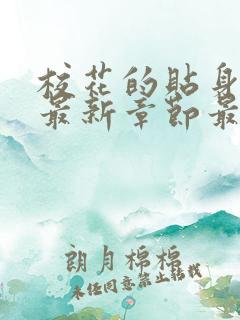 校花的贴身
最新章节最
朗月棉棉
未经同意禁止转载